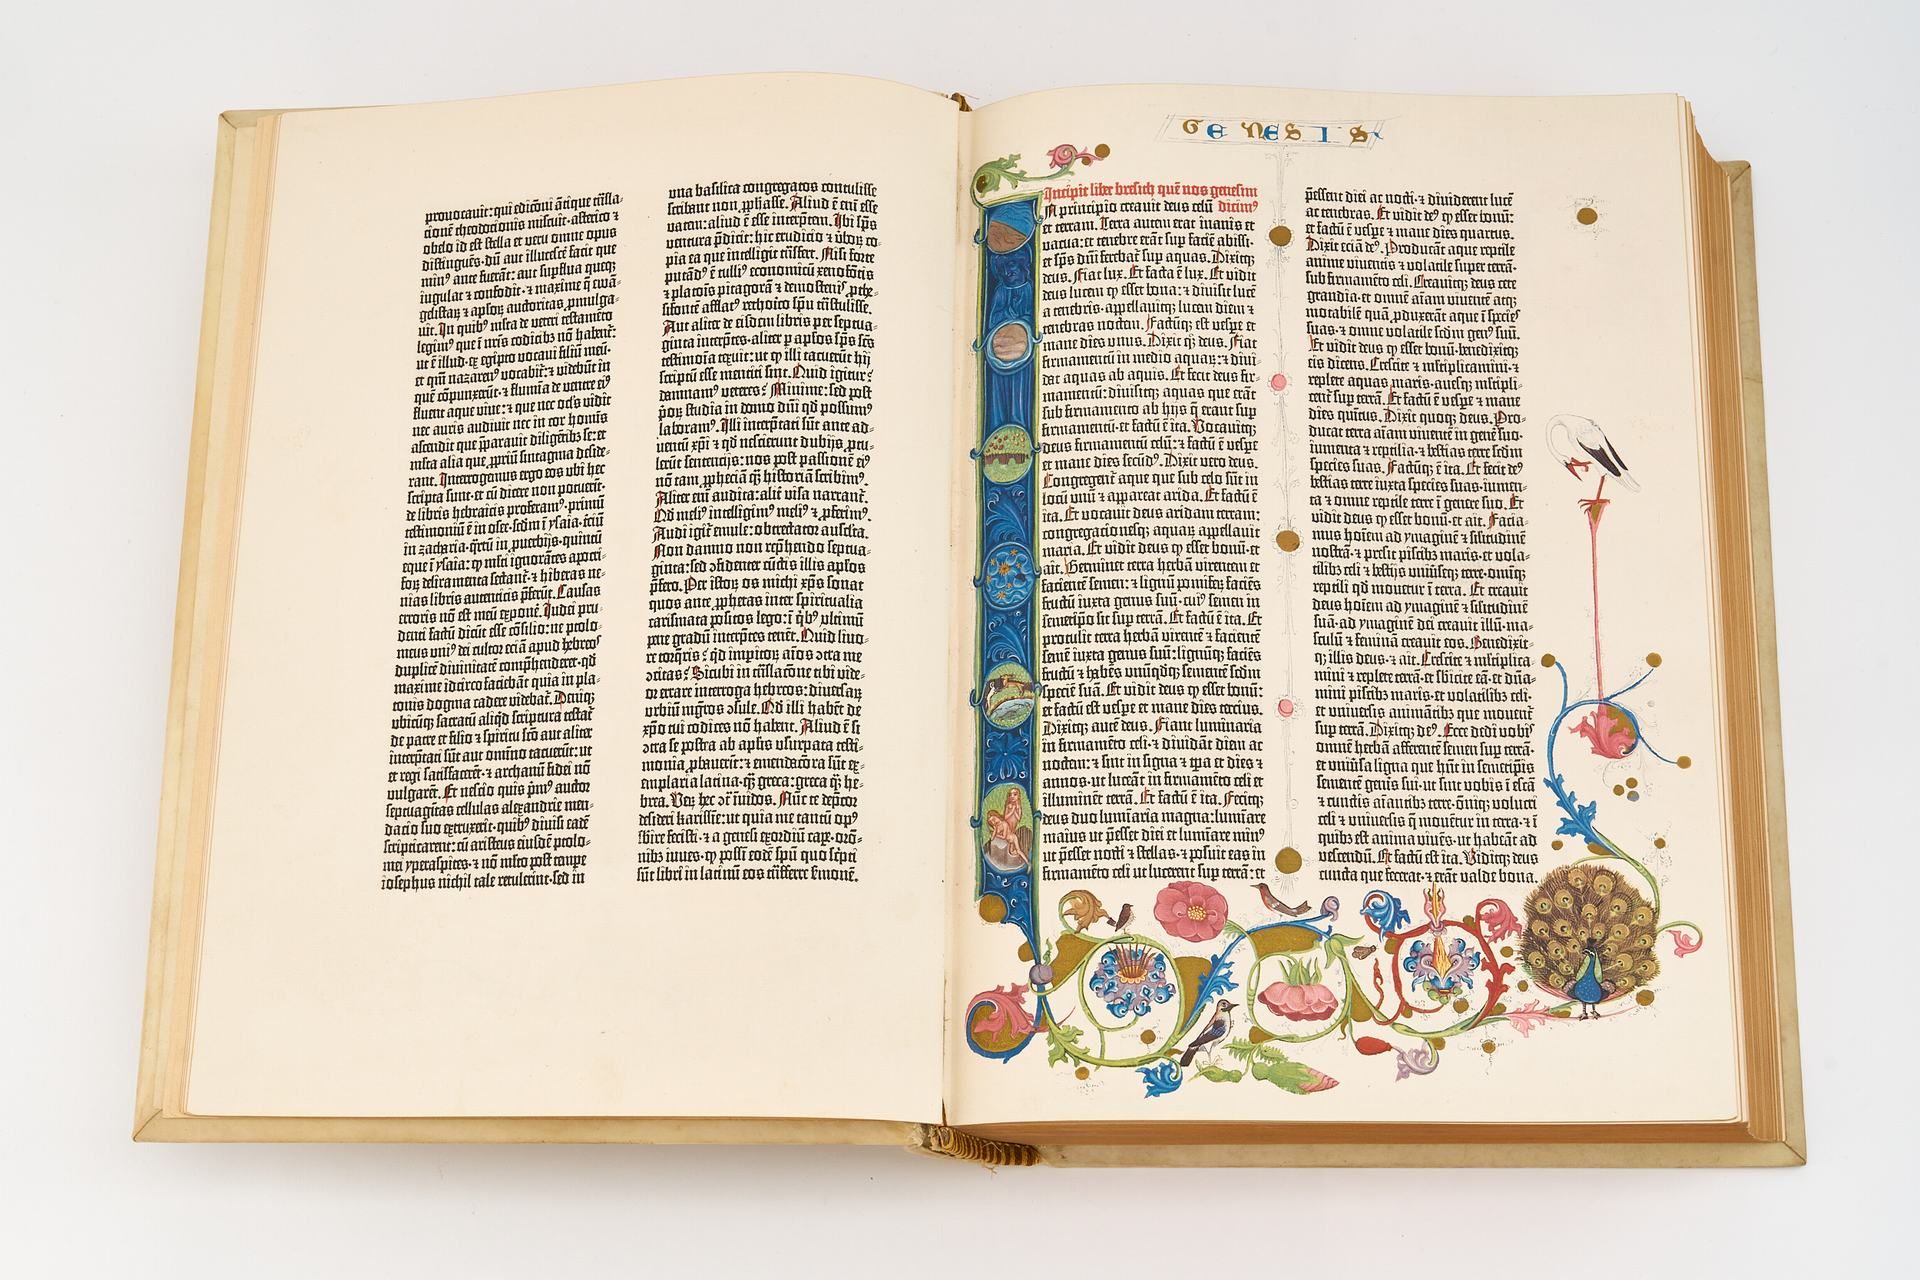 provocavit: qui editioni antique trãsla-
cionẽ theodocionis miscuit· asterico ⁊
obelo id est stella et veru omne opus
distinguẽs· dũ aut illucescẽ facit que
min⁹ ante fuerãt: aut supflua queq̨
iugulat ⁊ confodit· ⁊ maxime q̃ ewã-
gelistaꝝ ⁊ apƚoꝝ auctoritas ꝓmulga-
vit. In quib⁹ mlta de veteri testamẽto
legim⁹ que ĩ nr̃is codicibꝫ nõ habent̃:
ut ẽ illud· ex egipto vocavi filiũ meũ·
et qm̃ nazareus vocabit̃: ⁊ videbũt in
quẽ cõpunxerũt· ⁊ flumĩa de ventre ei⁹
fluent aque vive: ⁊ que nec ocl's vidit
nec auris audivit nec in cor hominis
ascendit que p̃paravit diligẽtibꝫ se: et
mlta alia que ꝓpriũ sintagma deside-
rant. Interrogemus ergo eos ubi hec
scripta sunt· et cũ dicere non potuerĩt·
de libris hebraicis proferam⁹. primũ
testimoniũ ẽ in osee· secũdm ĩ ysaia· terciũ
in zacharia· q̃rtũ in ꝓverbijs· quintũ
eque ĩ ysaia: ꝙ mlti ignorãtes apocri-
foꝝ deliramenta sectant̃· ⁊ hiberas ne-
nias libris autenticis p̃ferũt. Causas
erroris nõ est meũ exponẽ. Iudei pru-
denti factũ dicũt esse cõsilio: ne ptolo-
meus uni⁹ dei cultor eciã apud hebreos
duplicẽ divinitatẽ comp̃henderet· qđ
maxime idcirco faciebãt quia in pla-
tonis dogma cadere videbat̃. Deniq̨
ubicũq̨ sacratũ aliqđ scriptura testat̃
de patre et filio ⁊ spiritu sc̃o aut aliter
interptati sũt aut omnĩo tacuerũt: ut
et regi satisfacerẽt· ⁊ archanũ fidei nõ
vulgarẽt. Et nescio quis prim⁹ auctor
septuagĩta cellulas alexandrie men-
dacio suo extruxerit· quibꝫ divisi eadẽ
scriptitarent: cũ aristeus eiusdẽ ptolo-
mei yperaspites· ⁊ nõ mlto post tempe
iosephus nichil tale retulerint· sed in
una basilica congregatos contulisse
scribant non ꝓphetasse. Aliud ẽ enĩ esse
vatem: aliud ẽ esse interptem. Ibi sp̃s
ventura p̃dicit: hic eruditio ⁊ v̓boꝝ co-
pia ea que intelligit trãsfert. Nisi forte
putãd⁹ ẽ tulli⁹ economicũ xenofõtis
⁊ platonis pitagorã ⁊ demostenis ꝓthe-
sifontẽ afflat⁹ rethorico sp̃u trãstulisse.
Aut aliter de eisdem libris per septua-
ginta interptes· aliter p apƚos sp̃s sc̃s
testimonia texuit: ut ꝙ illi tacuerũt hij
scriptũ esse mentiti sint. Quid igitur?
damnam⁹ veteres? Minime: sed post
p̃oꝝ studia in domo dñi qđ possum⁹
laboram⁹. Illi interptati sũt ante ad-
ventũ xp̃i ⁊ qđ nescierunt dubijs ꝓtu-
lerũt sentencijs: nos post passionẽ ei⁹
nõ tam ꝓphetiã q̃ historiã scribim⁹.
Aliter eni audita: alit̃ visa narrant̃.
Qđ meli⁹ intelligim⁹ meli⁹ ⁊ ꝓferim⁹.
Audi igit̃ emule: obtrectator ausculta.
Non damno non rep̃hendo septua-
ginta: sed ↄfidenter cũctis illis apƚos
p̃fero. Per istoꝝ os michi xp̃s sonat
quos ante ꝓphetas inter spiritualia
carismata positos lego: ĩ q̃b⁹ ultimũ
pene gradũ interptes tenẽt. Quid livo-
re torqueris? qđ imptoꝝ aĩos ↄtra me
ↄcitas? Sicubi in trãslacõne tibi vide-
or errare interroga hebreos: diversaꝝ
urbiũ mg̃ros ↄsule. Qđ illi habẽt de
xp̃o tui codices nõ habent. Aliud ẽ si
ↄtra se postea ab apƚis usurpata testi-
monia ꝓbaverũt: ⁊ emendacora sũt ex-
emplaria latina· q̃ greca: greca q̃ he-
brea. Veꝝ hec ↄtra ĩvidos. Nũc te dep̃cor
desideri karissie: ut quia me tantũ op⁹
subire fecisti· ⁊ a genesi exordiũ cape· oro-
nibꝫ iuves· ꝙ possĩ eodẽ sp̃u quo scripti
sũt libri in latinũ eos trãsferre sermonẽ.
GENESIS
Incipit liber bresith quẽ nos genesim
dicim⁹
In principio creavit deus celũ
et terram. Terra autem erat inanis et
vacua: et tenebre erãt sup faciẽ abissi·
et sp̃s dñi ferebat̃ sup aquas. Dixitq̨
deus. Fiat lux. Et facta ẽ lux. Et vidit
deus lucem ꝙ esset bona: ⁊ divisit lucẽ
a tenebris· appellavitq̨ lucem diem ⁊
tenebras noctem. Factũq̨ est vespe et
mane dies unus. Dixit q̨ deus. Fiat
firmamentũ in medio aquaꝝ: ⁊ divi-
dat aquas ab aquis. Et fecit deus fir-
mamentũ: divisitq̨ aquas que erãt
sub firmamento ab hijs q̃ erant sup
firmamentũ· et factũ ẽ ita. Vocavitq̨
deus firmamentũ celũ: ⁊ factũ ẽ vespe
et mane dies secũd⁹. Dixit vero deus.
Congregent̃ aque que sub celo sũt in
locũ unũ ⁊ appareat arida. Et factũ ẽ
ita. Et vocavit deus aridam terram:
congregacionesq̨ aquaꝝ appellavit
maria. Et vidit deus ꝙ esset bonũ· et
ait. Germinet terra herbã virentem et
facientẽ semen: ⁊ lignũ pomifeꝝ faciẽs
fructũ iuxta genus suũ· cui⁹ semen in
semetipo sit sup terrã. Et factũ ẽ ita. Et
protulit terra herbã virentẽ ⁊ facientẽ
semẽ iuxta genus suũ: lignũq̨ faciẽs
fructũ ⁊ habẽs unũqdq̨ sementẽ secdm
speciẽ suã. Et vidit deus ꝙ esset bonũ:
et factũ est vespe et mane dies tercius.
Dixitq̨ autẽ deus. Fiant luminaria
in firmamẽto celi· ⁊ dividãt diem ac
noctem: ⁊ sint in signa ⁊ tp̃a et dies ⁊
annos· ut luceãt in firmamẽto celi et
illuminẽt terrã. Et factũ ẽ ita. Fecitq̨
deus duo lumĩaria magna: lumĩare
maius ut p̃esset diei et lumĩare min⁹
ut p̃esset nocti ⁊ stellas· ⁊ posuit eas in
firmamẽto celi ut lucerent sup terrã: et
p̃essent diei ac nocti· ⁊ dividerent lucẽ
ac tenebras. Et vidit de⁹ ꝙ esset bonũ:
et factũ ẽ vespe ⁊ mane dies quartus.
Dixit eciã de⁹. Producant aque reptile
anime viventis ⁊ volatile super terrã·
sub firmamẽto celi. Creavitq̨ deus cete
grandia· et omnẽ aĩam viventẽ atq̨
motabilẽ quã ꝓduxerãt aque ĩ species
suas· ⁊ omne volatile secdm gen⁹ suũ.
Et vidit deus ꝙ esset bonũ· benedixitq̨
eis dicens. Crescite ⁊ mltiplicamini· ⁊
replete aquas maris· avesq̨ mltipli-
cent̃ sup terrã. Et factũ ẽ vespe ⁊ mane
dies quĩtus. Dixit quoq̨ deus. Pro-
ducat terra aĩam viventẽ in genẽ suo·
iumenta ⁊ reptilia· ⁊ bestias terre secdm
species suas. Factũq̨ ẽ ita. Et fecit de⁹
bestias terre iuxta species suas· iumen-
ta ⁊ omne reptile terre ĩ genere suo. Et
vidit deus ꝙ esset bonũ· et ait. Facia-
mus hoĩem ad ymaginẽ ⁊ silitudinẽ
nostrã· ⁊ p̃sit piscibꝫ maris· et vola-
tilibꝫ celi ⁊ bestijs universeq̨ terre· omniq̨
reptili qđ movetur ĩ terra. Et creavit
deus hoĩem ad ymaginẽ ⁊ silitudinẽ
suã· ad ymaginẽ dei creavit illũ· ma-
sculũ ⁊ feminã creavit eos. Benedixit-
q̨ illis deus· ⁊ ait. Crescite ⁊ mltiplica-
mini ⁊ replete terrã· et sbicite eã· et dñia-
mini piscibꝫ maris· et volatilibꝫ celi·
et universis animãtibꝫ que movent̃
sup terrã. Dixitq̨ de⁹. Ecce dedi vobis
omnẽ herbã afferentẽ semen sup terrã·
et universa ligna que hñt in semetipis
sementẽ genis sui· ut sint vobis ĩ escã
⁊ cunctis aĩantibꝫ terre· omniq̨ volucri
celi ⁊ universis q̃ movẽtur in terra· ⁊ ĩ
quibꝫ est anima vivens· ut habeãt ad
vescendũ. Et factũ est ita. Viditq̨ deus
cuncta que fecerat· ⁊ erãt valde bona.